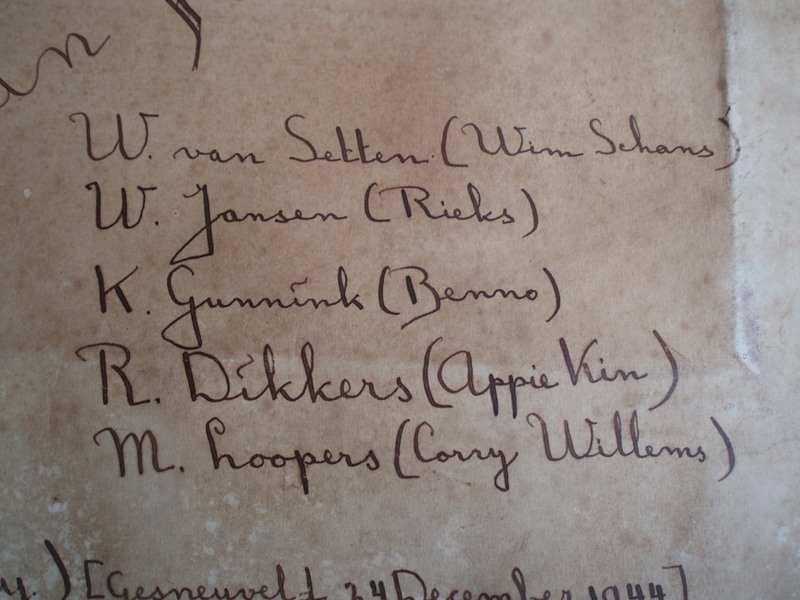 an
W. van Setten (Wim Schans)
W. Jansen (Rieks)
K. Gunnink (Benno)
R. Dikkers (Appie Kin)
M. Loopers (Corry Willems)
y.) [Gesneuveld 24 December 1944]